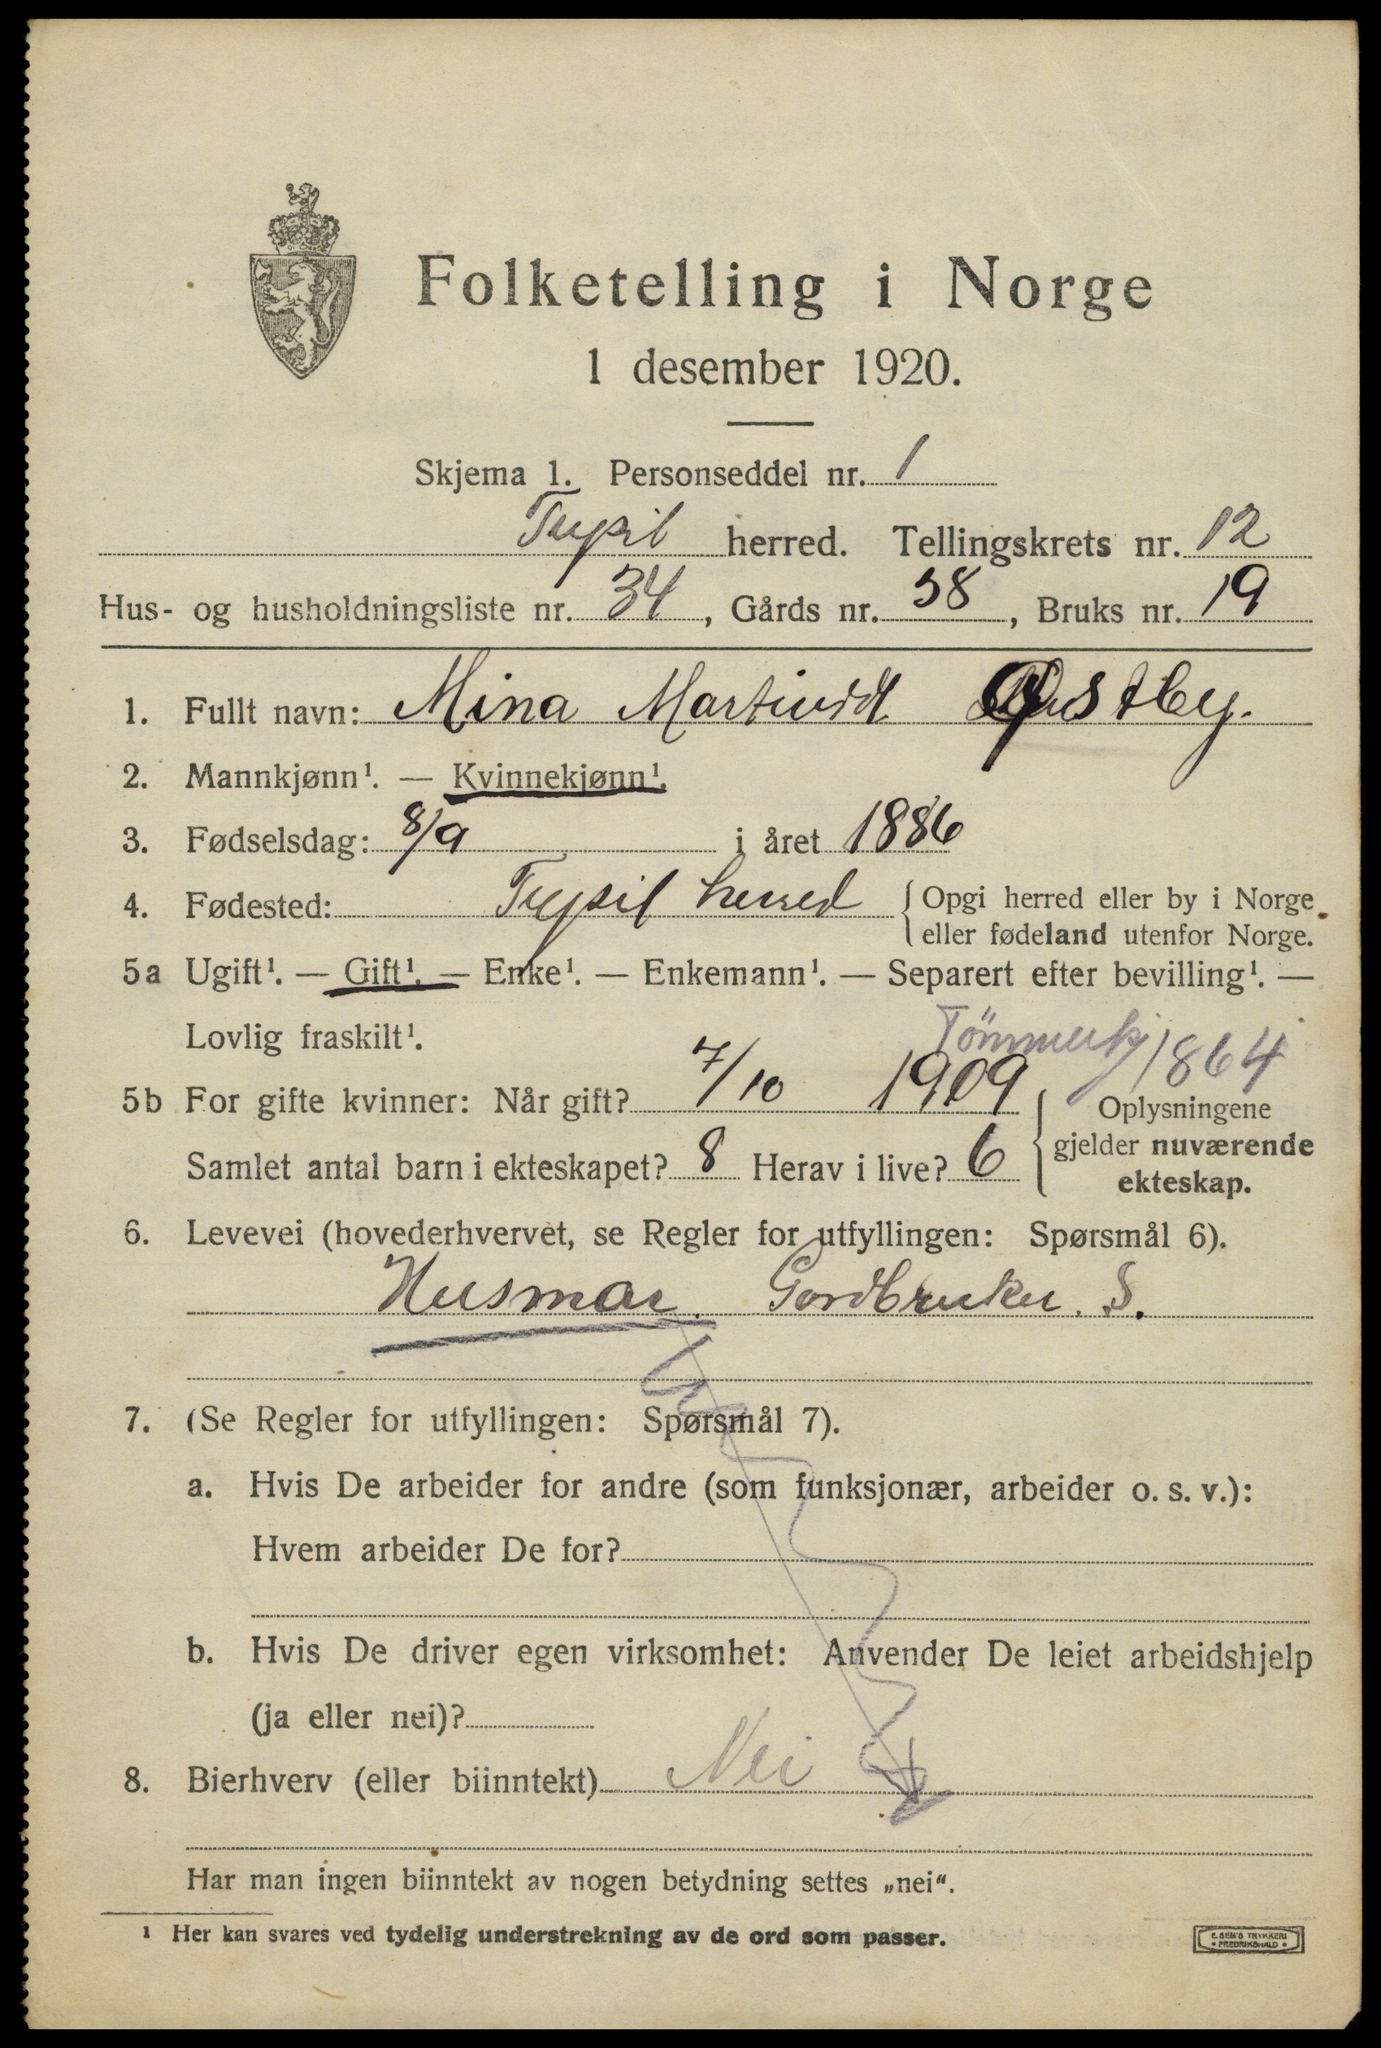 Folketelling i Norge
1 desember 1920.
Skjema 1. Personseddel nr. 1
Trysil herred. Tellingskrets nr. 12
Hus- og husholdningsliste nr. 34, Gårds nr. 38, Bruks nr. 19
1. Fullt navn: Mina Østby.
2. Mannkjønn¹. — Kvinnekjønn¹.
3. Fødselsdag: 8/9 i året 1886
4. Fødested: Trysil herred {Opgi herred eller by i Norge
eller fødeland utenfor Norge.
5a Ugift¹. — Gift¹. — Enke¹. — Enkemann¹. — Separert efter bevilling¹. —
Lovlig fraskilt¹.
1864
5b For gifte kvinner: Når gift? 7/10 1909 { Oplysningene
gjelder nuværende
ekteskap.
Samlet antal barn i ekteskapet? 8 Herav i live? 6
6. Levevei (hovederhvervet, se Regler for utfyllingen: Spørsmål 6).
Husmor. Gardbruker. S.
7. (Se Regler for utfyllingen: Spørsmål 7).
a. Hvis De arbeider for andre (som funksjonær, arbeider o. s. v.):
Hvem arbeider De for?
b. Hvis De driver egen virksomhet: Anvender De leiet arbeidshjelp
(ja eller nei)?
8. Bierhverv (eller biinntekt) Nei
Har man ingen biinntekt av nogen betydning settes „nei“.
¹ Her kan svares ved tydelig understrekning av de ord som passer.
E. SEM'S TRYKKERI
• FREDRIKSHALD •